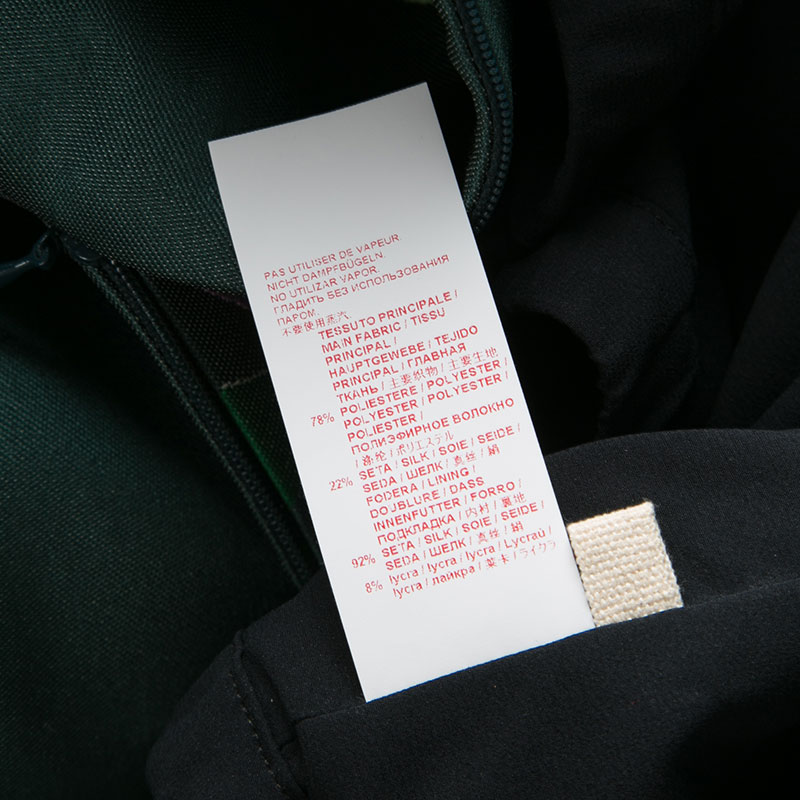 PAS UTILISER DE VAPEUR.
NICHT DAMPFBÜGELN.
NO UTILIZAR VAPOR.
ГЛАДИТЬ БЕЗ ИСПОЛЬЗОВАНИЯ
ПАРОМ.
不要使用蒸汽.
TESSUTO PRINCIPALE /
MAIN FABRIC / TISSU
PRINCIPAL /
HAUPTGEWEBE / TEJIDO
PRINCIPAL / ГЛАВНАЯ
ТКАНЬ / 主要织物 / 主要生地
78% POLIESTERE / POLYESTER /
POLYESTER / POLYESTER /
POLIESTER /
ПОЛИЭФИРНОЕ ВОЛОКНО
/ 涤纶 / ポリエステル
22% SETA / SILK / SOIE / SEIDE /
SEDA / ШЕЛК / 真丝 / 絹
FODERA / LINING /
DOUBLURE / DASS
INNENFUTTER / FORRO /
ПОДКЛАДКА / 内衬 / 裏地
92% SETA / SILK / SOIE / SEIDE /
SEDA / ШЕЛК / 真丝 / 絹
8% lycra / lycra / lycra / Lycraü /
lycra / лайкра / 莱卡 / ライクラ